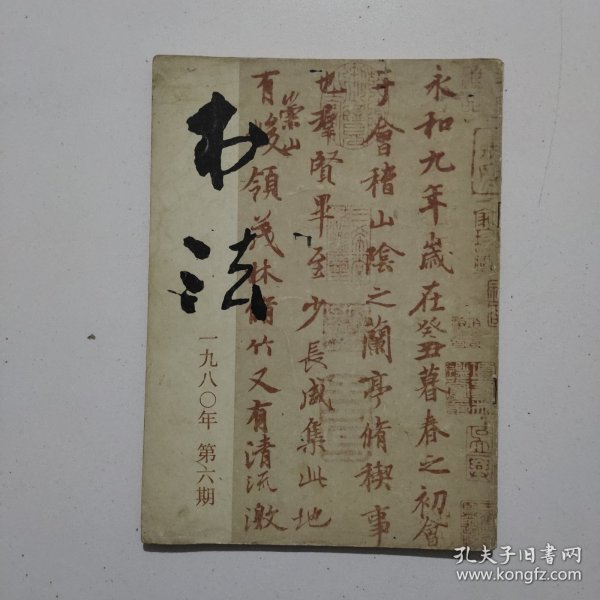 书法
一九八〇年 第六期
永和九年歲在癸丑暮春之初會
于會稽山陰之蘭亭脩稧事
也羣賢畢至少長咸集此地
有崇山峻領茂林脩竹又有清流激
孔夫子旧书网
www.kongfz.com